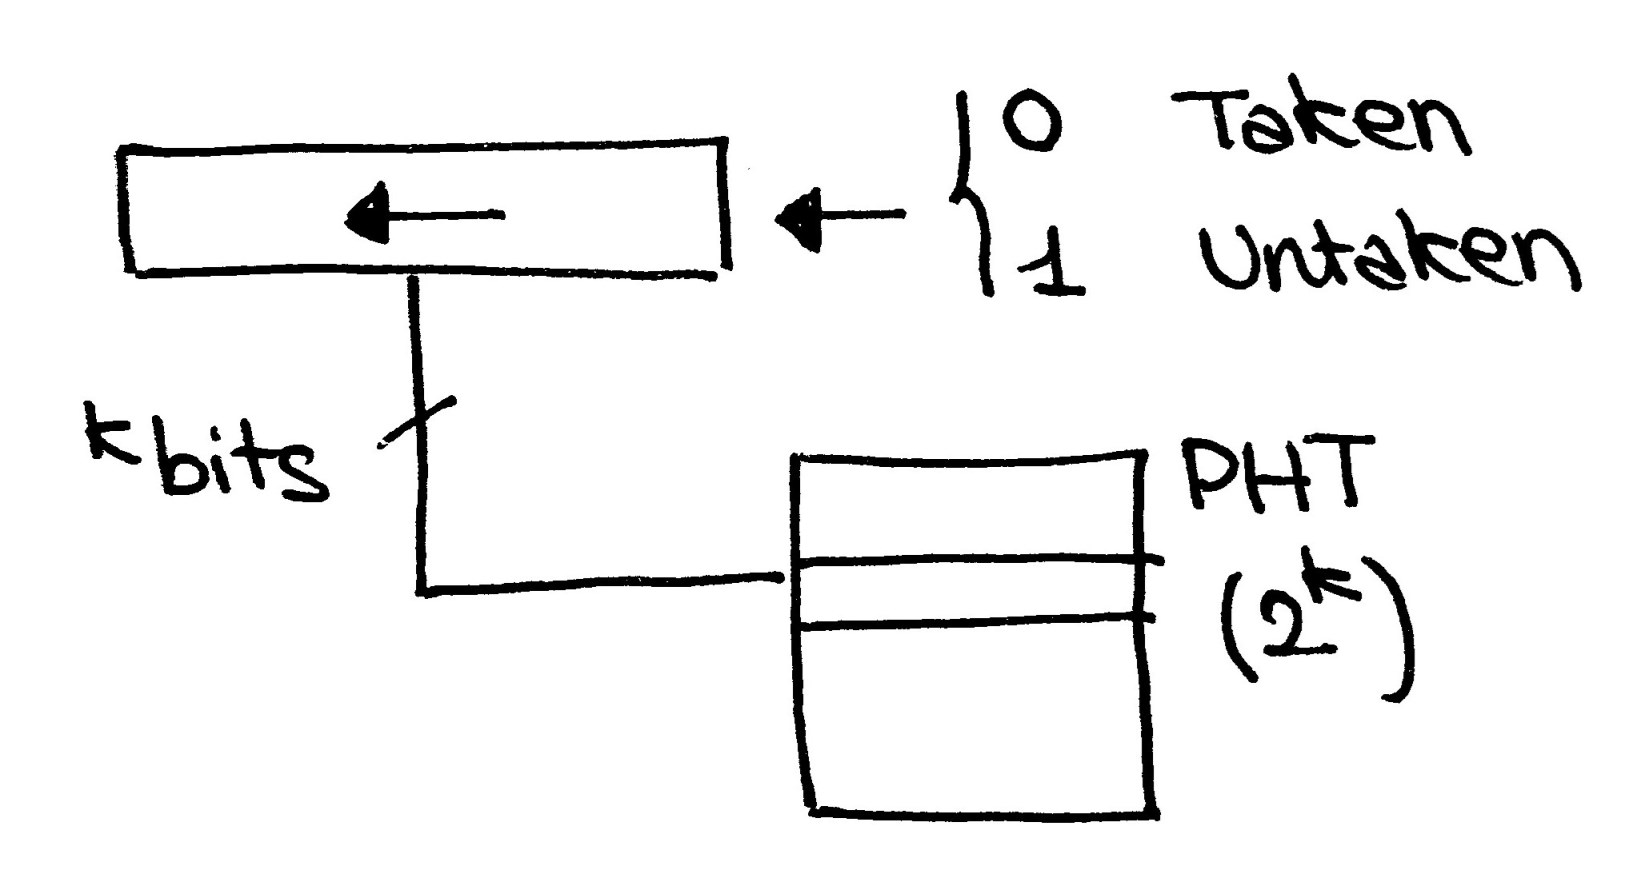 0 Taken
1 Untaken
k bits
PHT
(2^k)